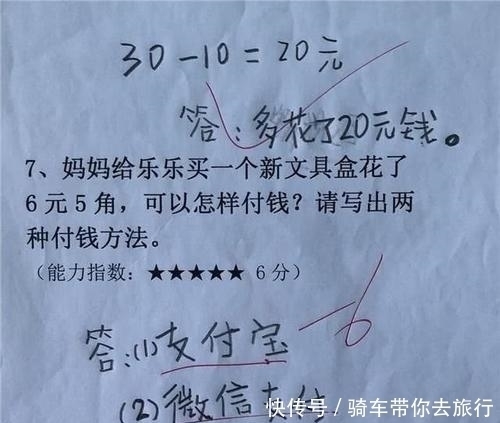 30-10=20元
答:多花了20元钱。
7、妈妈给乐乐买一个新文具盒花了
6元5角，可以怎样付钱？请写出两
种付钱方法。
（能力指数：★★★★★ 6分）
-6
答:(1)支付宝
(2)微信支付
快传号/骑车带你去旅行